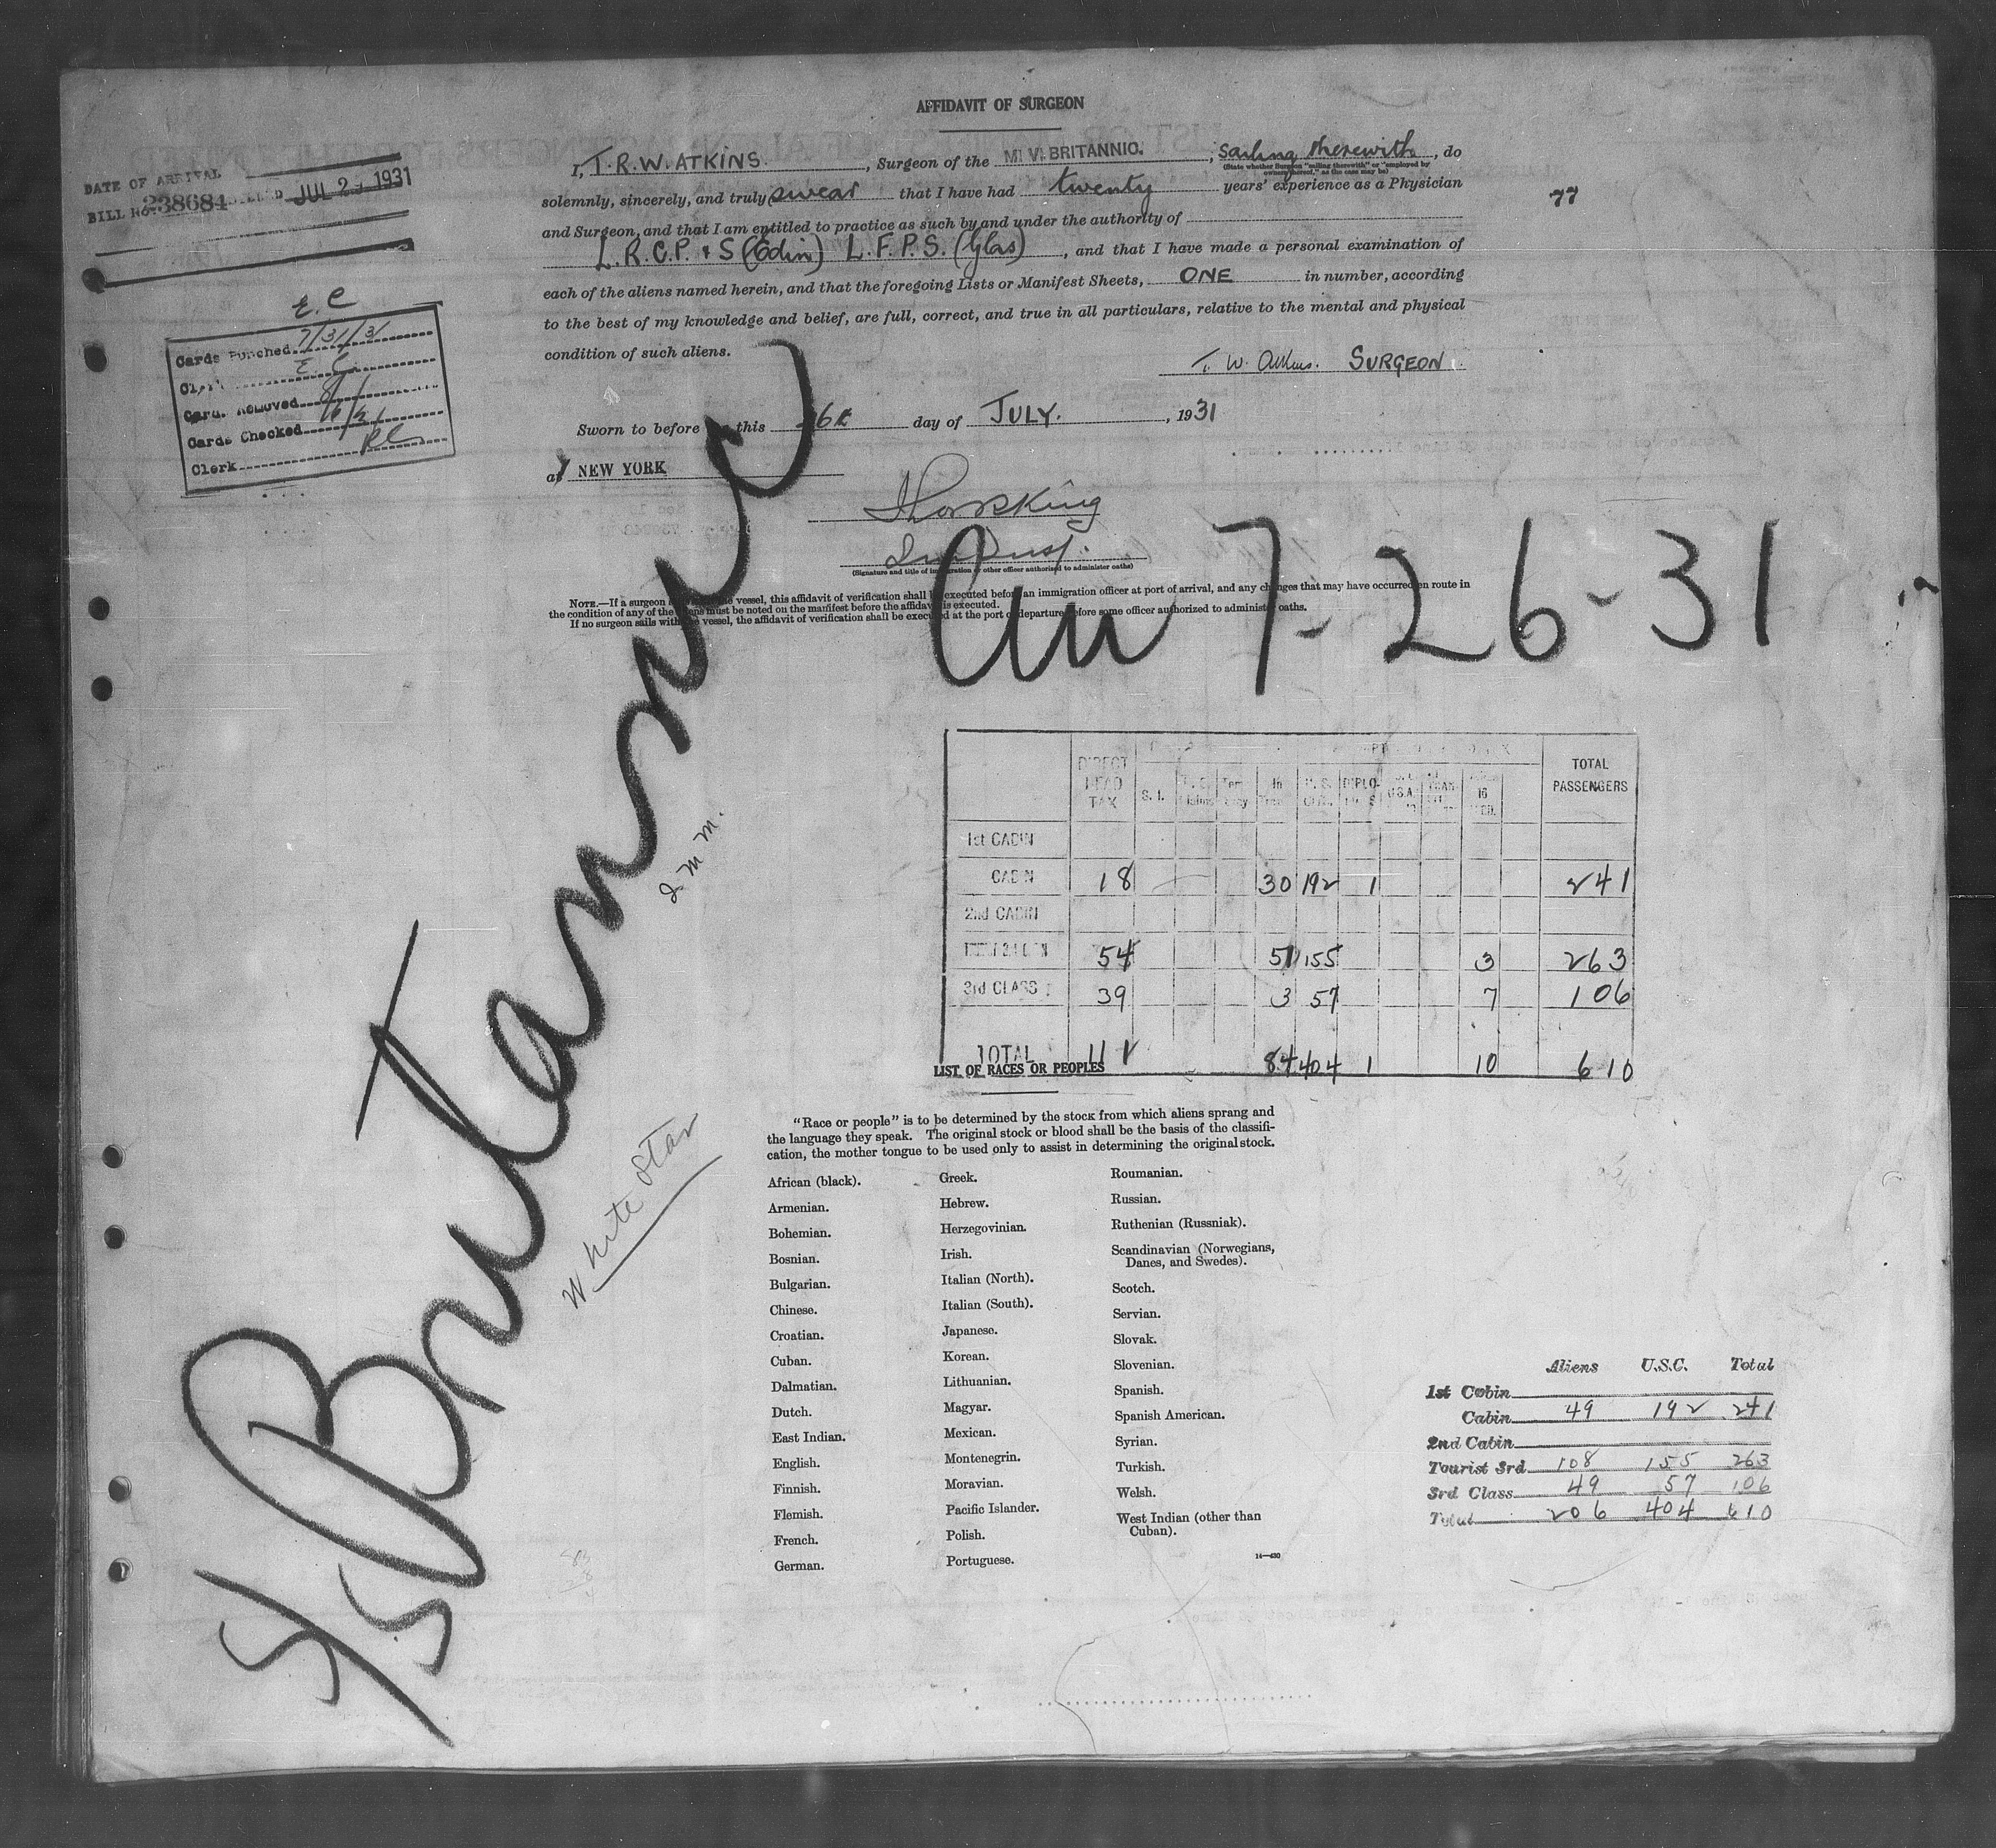 AFFIDAVIT OF SURGEON
I, T.R.W. ATKINS. , Surgeon of the M. V. BRITANNIC. , Sailing therewith , do
(State whether Surgeon "sailing therewith" or "employed by
owners thereof," as the case may be)
solemnly, sincerely, and truly swear that I have had twenty years' experience as a Physician
and Surgeon, and that I am entitled to practice as such by and under the authority of
L.R.C.P. & S (Edin) L.F.P.S. (Glas) , and that I have made a personal examination of
each of the aliens named herein, and that the foregoing Lists or Manifest Sheets, ONE in number, according
to the best of my knowledge and belief, are full, correct, and true in all particulars, relative to the mental and physical
condition of such aliens.
SURGEON.
Sworn to before this 26th day of JULY. , 1931
at NEW YORK
77
DATE OF ARRIVAL
BILL No. 238684 JUL 2 1931
E.C
Cards Punched 7/31/31
Clerk E.C.
Card. Removed
Cards Checked
Clerk
(Signature and title of immigration or other officer authorized to administer oaths)
NOTE.—If a surgeon the vessel, this affidavit of verification shall be executed before an immigration officer at port of arrival, and any changes that may have occurred en route in
the condition of any of the aliens must be noted on the manifest before the affidavit is executed.
If no surgeon sails with the vessel, the affidavit of verification shall be executed at the port of departure before some officer authorized to administer oaths.
Arr 7-26-31
S/S Britannic
I.M.M.
White Star
DIRECT HEAD TAX S. I. In Tran U.S. DIPLO- U.S.A. 16 TOTAL PASSENGERS
1st CABIN
CABIN 18 30 192 1 241
2nd CABIN
54 51 155 3 263
3rd CLASS 39 3 57 7 106
TOTAL 111 84 404 1 10 610
LIST OF RACES OR PEOPLES
"Race or people" is to be determined by the stock from which aliens sprang and
the language they speak. The original stock or blood shall be the basis of the classifi-
cation, the mother tongue to be used only to assist in determining the original stock.
African (black).
Armenian.
Bohemian.
Bosnian.
Bulgarian.
Chinese.
Croatian.
Cuban.
Dalmatian.
Dutch.
East Indian.
English.
Finnish.
Flemish.
French.
German.
Greek.
Hebrew.
Herzegovinian.
Irish.
Italian (North).
Italian (South).
Japanese.
Korean.
Lithuanian.
Magyar.
Mexican.
Montenegrin.
Moravian.
Pacific Islander.
Polish.
Portuguese.
Roumanian.
Russian.
Ruthenian (Russniak).
Scandinavian (Norwegians,
Danes, and Swedes).
Scotch.
Servian.
Slovak.
Slovenian.
Spanish.
Spanish American.
Syrian.
Turkish.
Welsh.
West Indian (other than
Cuban).
14—430
Aliens U.S.C. Total
1st Cabin
Cabin 49 192 241
2nd Cabin
Tourist 3rd 108 155 263
3rd Class 49 57 106
Total 206 404 610